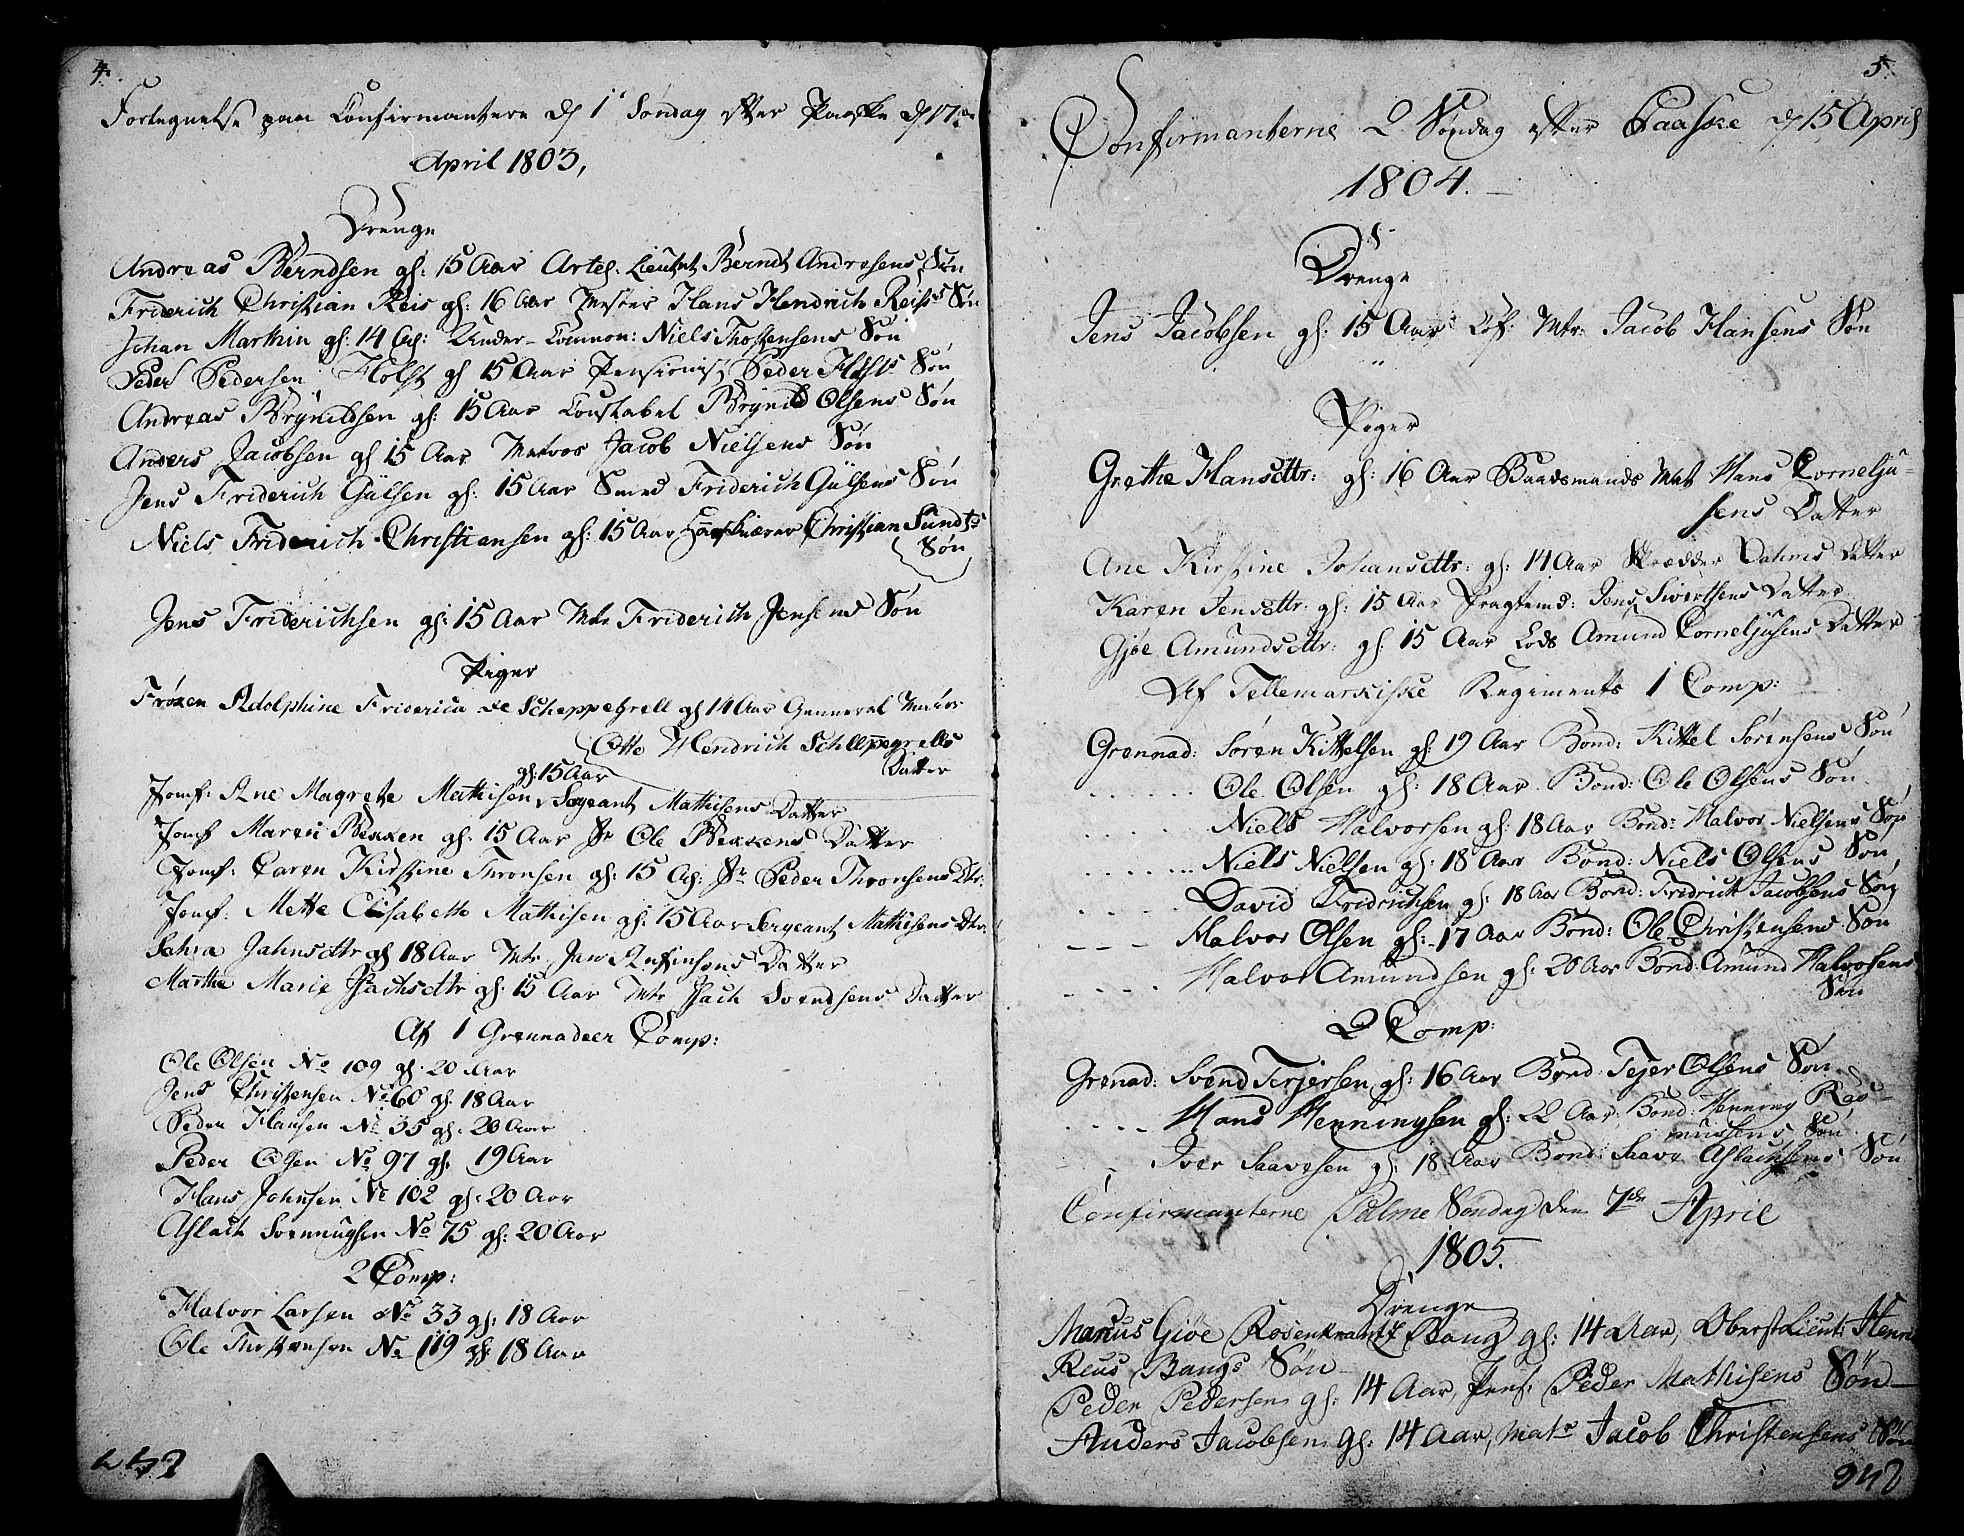 4.
Fortegnelse paa Confirmantere d 1' Søndag efter Paaske d 17de
April 1803,
Drenge
Andreas Berndsen gl: 15 Aar Artel. Lieutnt Berndt Andresens Søn
Friderich Christian Reis gl: 16 Aar Hans Hendrich Reis's Søn
Johan Marthin gl: 14 Under-Connon: Niels Thostensens Søn
Peder Pedersen Holst gl 15 Aar Pensionist Peder Holsts Søn
Andreas Brynildsen gl: 15 Aar Constabel Brynild Olsens Søn
Anders Jacobsen gl 15 Aar Matros Jacob Nielsens Søn
Jens Friderich Gülsen gl: 15 Aar Smed Friderich Gülsens Søn
Niels Friderich Christiansen gl: 15 Aar Christian Sundts
Søn
Jens Friderichsen gl: 15 Aar Mtr Friderich Jensens Søn
Piger
Frøken Adolphine Friderica de Scheppegrell gl 14 Aar Genneral Maior
Otto Hendrich Scheppegrells
Datter
Jomf: Ane Magrete Mathisen gl: 15 Aar Sergeant Mathisens Datter
Jomf Maren Bekken gl: 15 Aar Sr Ole Bekkens Datter
Jomf: Caren Kirstine Thronsen gl: 15 Sr Peder Thronsens Dtr.
Jomf: Mette Elisabeth Mathisen gl: 15 Aar Sergeant Mathisens Dtr.
Sahra Jahnsdttr gl 18 Aar Mtr Jan Datter
Marthe Marie gl: 15 Aar Mtr Svendsens Datter
Af 1 Grennadeer Comp:
Ole Olsen No 109 gl. 20 Aar
Jens Christensen No 60 gl: 18 Aar
Peder Hansen No 35 gl: 20 Aar
Peder Olsen No 97 gl: 19 Aar
Hans Johnsen No 102 gl: 20 Aar
Aslach No 75 gl: 20 Aar
2 Comp:
Halvor Larsen No 33 gl: 18 Aar
Ole Thostensen No 119 gl: 18 Aar
5.
Confirmanterne 2 Søndag efter Paaske d 15 April
1804.
Drenge
Jens Jacobsen gl: 15 Aar Mtr: Jacob Hansens Søn
Piger
Grethe Hansdttr: gl: 16 Aar Baadsmands Mat Hans Cornelju-
sens Datter
Ane Kirstine Johansdttr: gl: 14 Aar Skrædder Dahms Datter
Karen Jensdttr: gl: 15 Aar Jens Sivertsens Datter
Gjøe Amundsdttr: gl: 15 Aar Lods Amund Corneljusens Datter
Af Tellemarkiske Regiments 1 Comp:
Grennad: Søren Kittelsen gl: 19 Aar Bond: Kittel Sørensens Søn
Ole Olsen gl: 18 Aar Bond: Ole Olsens Søn
Niels Halvorsen gl: 18 Aar Bond: Halvor Nielsens Søn
Niels Nielsen gl: 18 Aar Bond: Niels Olsens Søn
David Fridrichsen gl: 18 Aar Bond: Fridrich Jacobsens Søn
Halvor Olsen gl: 17 Aar Bond: Ole Christensens Søn
Halvor Amundsen gl: 20 Aar Bond: Amund Halvorsens
Søn
2 Comp:
Grenad: Svend Terjersen gl: 16 Aar Bond Tejer Olsens Søn
Hans Henningsen gl: 22 Aar Bond: Henning Ras-
mussens Søn
Iver Saavesen gl: 18 Aar Bond: Saave Aslachsens Søn
Confirmanterne Palme Søndag den 7de April
1805.
Drenge
Marcus Giøe Rosenkrantz Bang gl: 14 Aar, OberstLieut: Henri
Bangs Søn
Peder Pedersen gl: 14 Aar, Pens: Peder Mathisens Søn
Anders Jacobsen gl: 14 Aar, Matr Jacob Christensens Søn